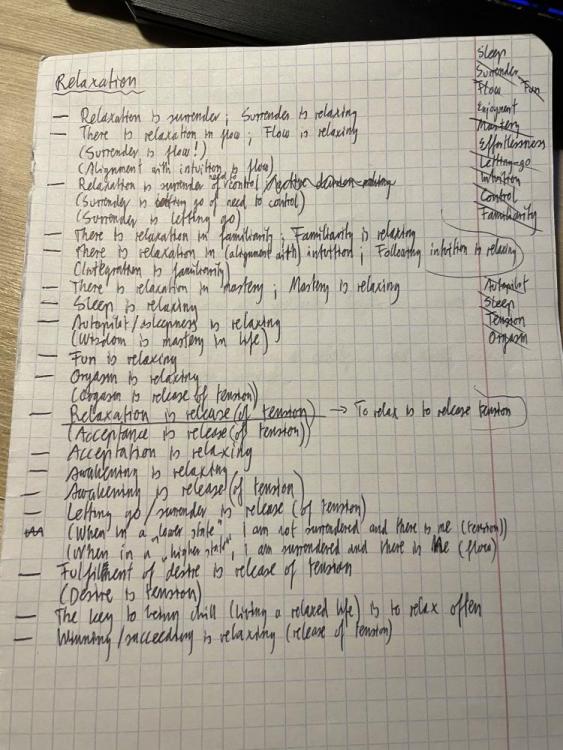 Relaxation
— Relaxation is surrender; Surrender is relaxing
— There is relaxation in flow; Flow is relaxing
(Surrender is flow!)
(Alignment with intuition is flow)
— Relaxation is surrender of need to control / Active decision-making
(Surrender is letting go of need to control)
(Surrender is letting go)
— There is relaxation in familiarity; Familiarity is relaxing
— There is relaxation in (alignment with) intuition; Following intuition is relaxing
(Integration is familiarity)
— There is relaxation in mastery; Mastery is relaxing
— Sleep is relaxing
— Autopilot/asleepness is relaxing
(Wisdom is mastery in life)
— Fun is relaxing
— Orgasm is relaxing
(Orgasm is release of tension)
— Relaxation is release (of tension) → To relax is to release tension
(Acceptance is release (of tension))
— Acceptation is relaxing
— Awakening is relaxing
— Awakening is release (of tension)
— Letting go/surrender is release (of tension)
(When in a "lower state", I am not surrendered and there is me (tension))
(When in a "higher state", I am surrendered and there is Me (flow)
— Fulfilment of desire is release of tension
(Desire is tension)
— The key to being chill (living a relaxed life) is to relax often
— Winning/succeeding is relaxing (release of tension)
Sleep
Surrender
Flow Fun
Enjoyment
Mastery
Effortlessness
Letting-go
Intuition
Control
Familiarity
Autopilot
Sleep
Tension
Orgasm